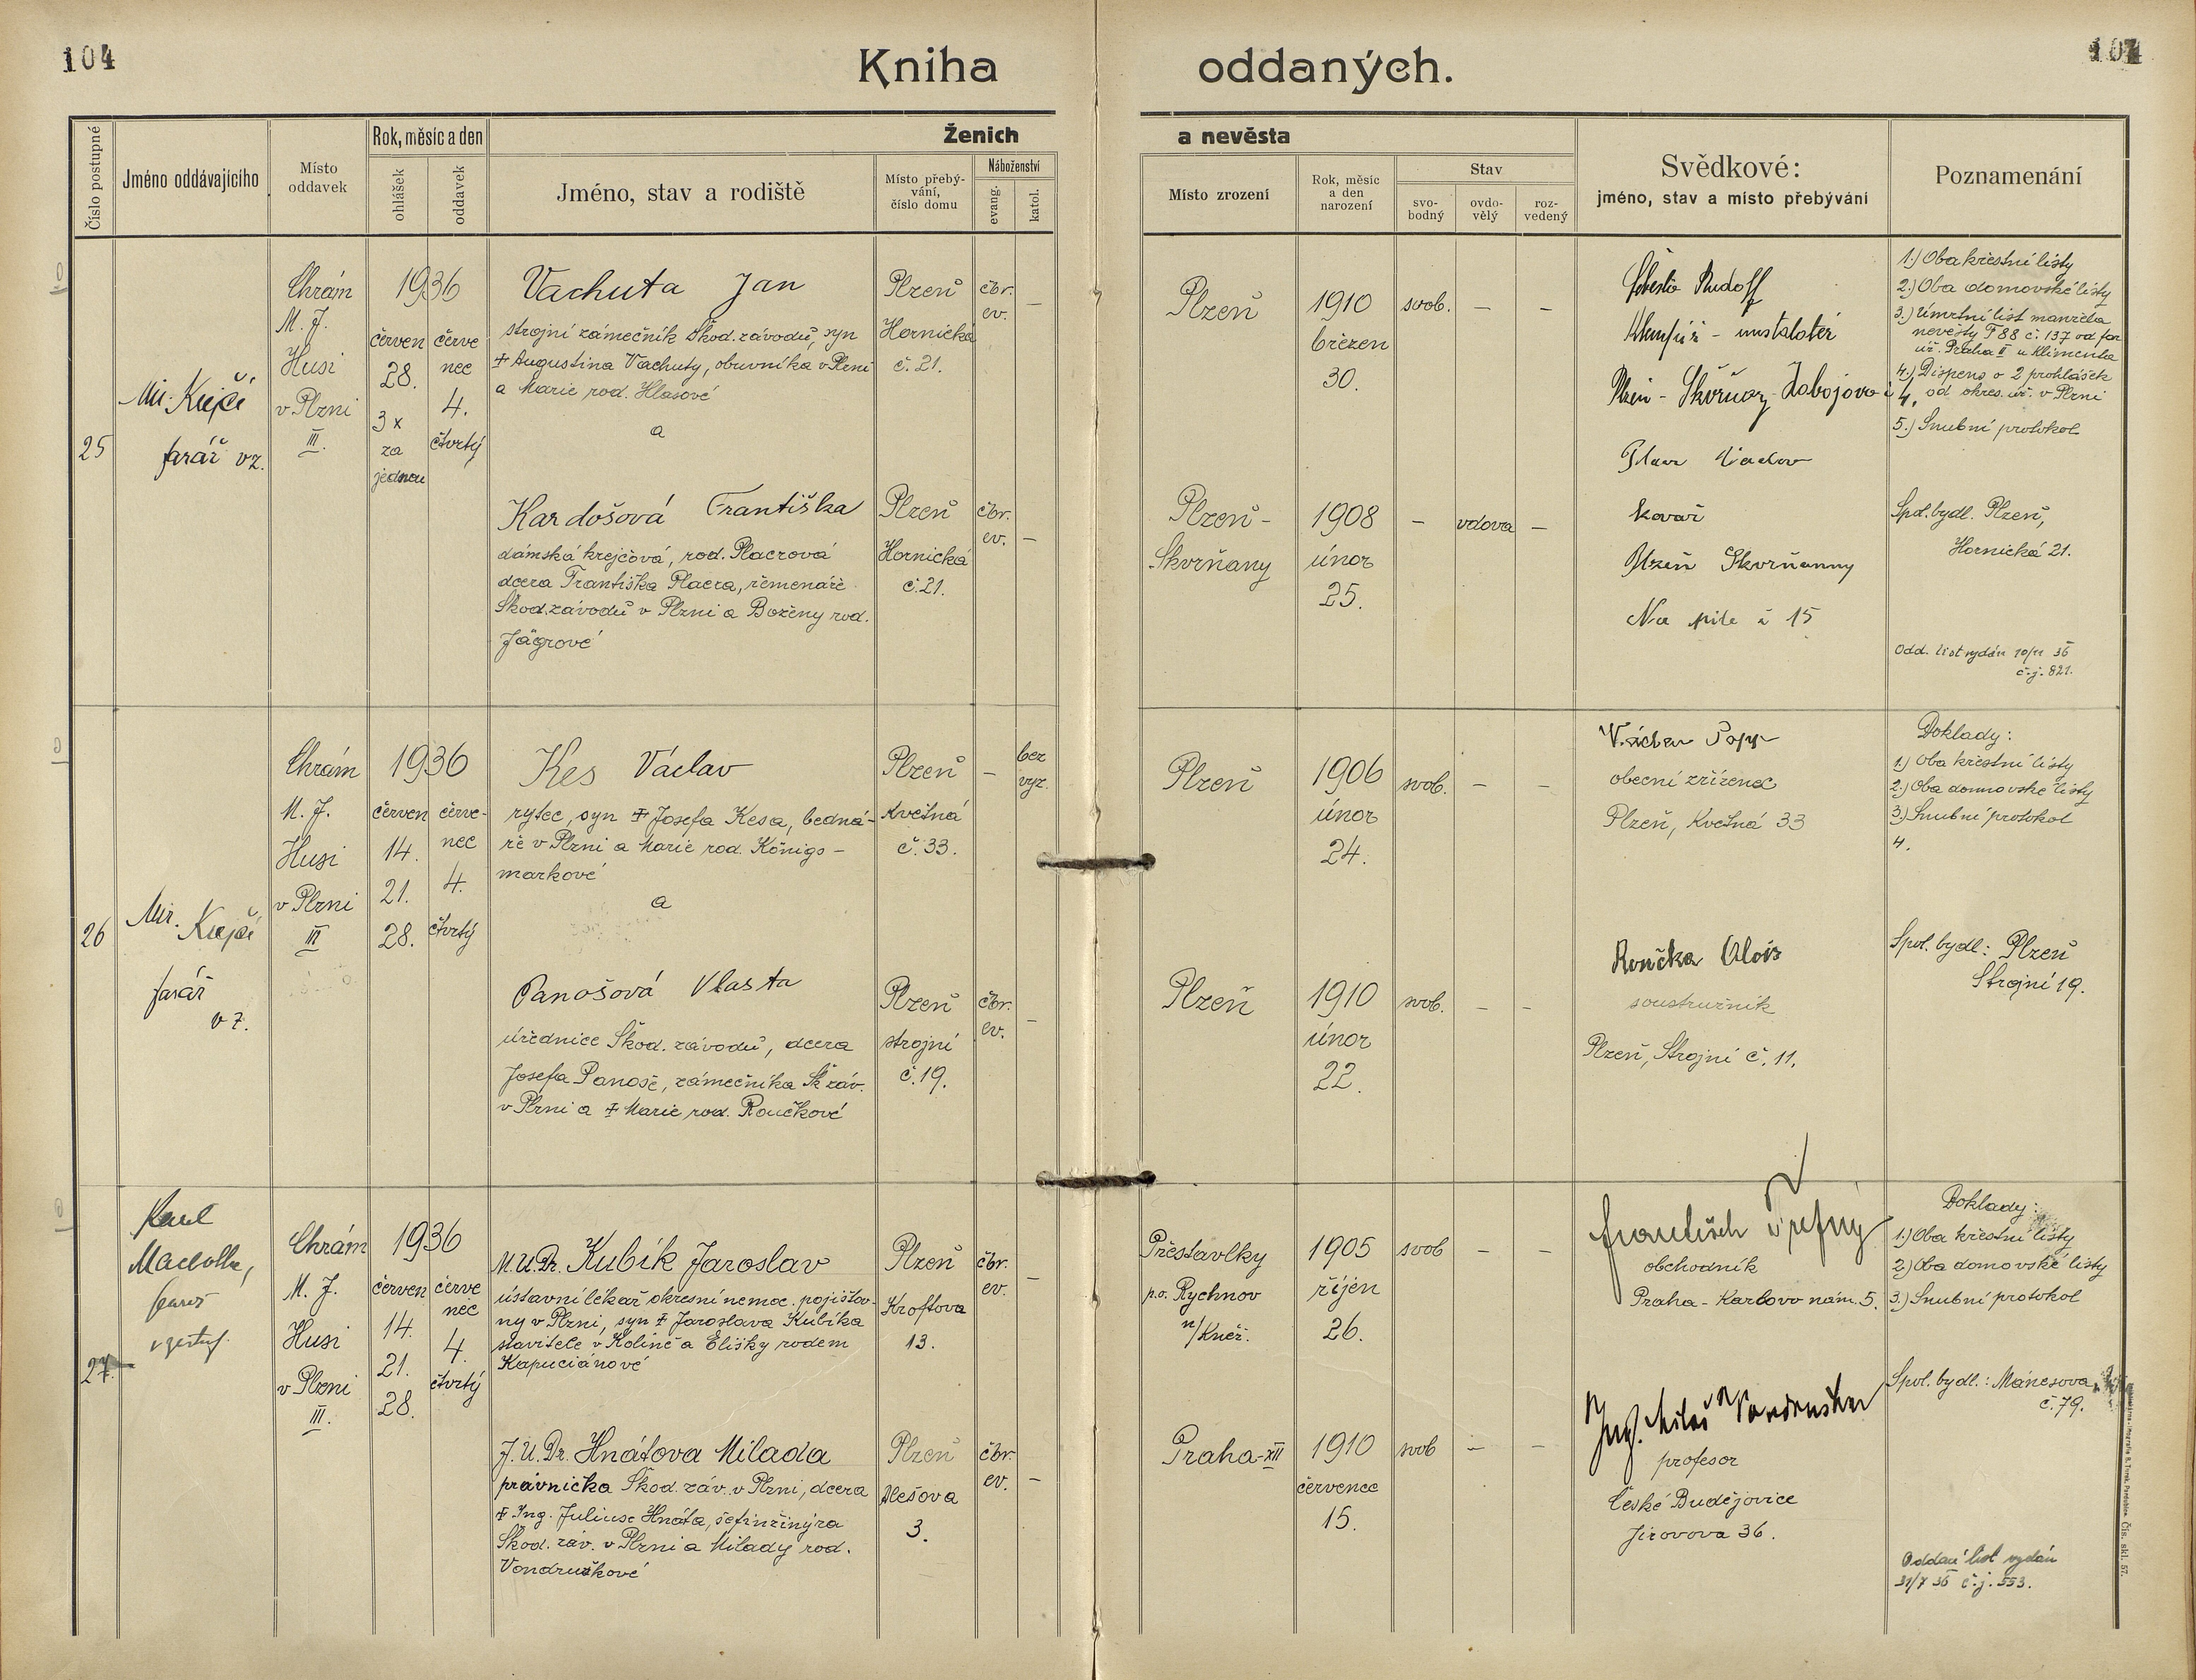 104
Kniha oddaných.
104
Číslo postupné
Jméno oddávajícího
Místo oddavek
Rok, měsíc a den
ohlášek
oddavek
Ženich
Jméno, stav a rodiště
Místo přebý-
vání,
číslo domu
Náboženství
evang.
katol.
a nevěsta
Místo zrození
Rok, měsíc
a den
narození
Stav
svo-
bodný
ovdo-
vělý
roz-
vedený
Svědkové:
jméno, stav a místo přebývání
Poznamenání
25
Mir. Krejčí
farář vz.
Chrám
M. J.
Husi
v Plzni
III.
1936
červen
28.
3 x
za
jednou
červe
nec
4.
čtvrtý
Vachuta Jan
strojní zámečník Škod. závodů, syn
† Augustina Vachuty, obuvníka v Plzni
a Marie rod. Hlasové
a
Plzeň
Hornická
č. 21.
čbr.
ev.
–
Kardošová Františka
dámská krejčová, rod. Placrová
dcera Františka Placra, řemenáře
Škod. závodů v Plzni a Boženy rod.
Jägrové
Plzeň
Hornická
č. 21.
čbr.
ev.
–
Plzeň
1910
březen
30.
svob.
–
–
Plzeň-
Skvrňany
1908
únor
25.
–
vdova
–
Rudolf
Klempíř - instalatér
Plzeň - Skvrňany
kovář
Plzeň Skvrňanny
Na pile č 15
1.) Oba křestní listy
2.) Oba domovské listy
3.) Úmrtní list manžela
nevěsty F 88 č. 137 od far
úř. Praha II u Klimenta
4.) Dispens o 2 prohlášek
od okres. úř. v Plzni
5.) Snubní protokol
Spol. bydl. Plzeň,
Hornická 21.
Odd. list vydán 10/11 36
č.j. 821.
26
Mir. Krejčí
farář
vz.
Chrám
M. J.
Husi
v Plzni
III
1936
červen
14.
21.
28.
červe-
nec
4.
čtvrtý
Kes Václav
rytec, syn † Josefa Kesa, bedná-
ře v Plzni a Marie rod. Königs-
markové
a
Plzeň
Květná
č. 33.
–
bez
vyz.
Panošová Vlasta
úřednice Škod. závodů, dcera
Josefa Panoše, zámečníka Šk záv.
v Plzni a † Marie rod. Roučkové
Plzeň
strojní
č. 19.
čbr.
ev.
–
Plzeň
1906
únor
24.
svob.
–
–
Plzeň
1910
únor
22.
svob.
–
–
Václav Popp
obecní zřízenec
Plzeň, Květná 33
Roučka Alois
soustružník
Plzeň, Strojní č. 11.
Doklady:
1.) Oba křestní listy
2.) Oba domovské listy
3.) Snubní protokol
4.
Spol. bydl.: Plzeň
Strojní 19.
27.
Karel
farář
v zastup.
Chrám
M. J.
Husi
v Plzni
III.
1936
červen
14.
21.
28.
červe
nec
4.
čtvrtý
M.U.Dr. Kubík Jaroslav
ústavní lékař okresní nemoc. pojišťov-
ny v Plzni, syn † Jaroslava Kubíka
stavitele v Kolíně a Elišky rodem
Kapuciánové
Plzeň
Kroftova
13.
čbr.
ev.
–
J.U.Dr. Hnátova Milada
právnička Škod. záv. v Plzni, dcera
† Ing. Juliuse Hnáta, šefinžinýra
Škod. záv. v Plzni a Milady rod.
Vondruškové
Plzeň
Alešova
3.
čbr.
ev.
–
Přestavlky
p.o. Rychnov
n/Kněž.
1905
říjen
26.
svob
–
–
Praha-XII
1910
červenec
15.
svob
–
–
František
obchodník
Praha - Karlovo nám. 5.
Ing. Miloš Vondruška
profesor
České Budějovice
Jirovova 36.
Doklady:
1.) Oba křestní listy
2.) Oba domovské listy
3.) Snubní protokol
Spol. bydl.: Mánesova
č. 79.
Oddací list vydán
31/7 36 č.j. 553.
Čís. skl. 57.